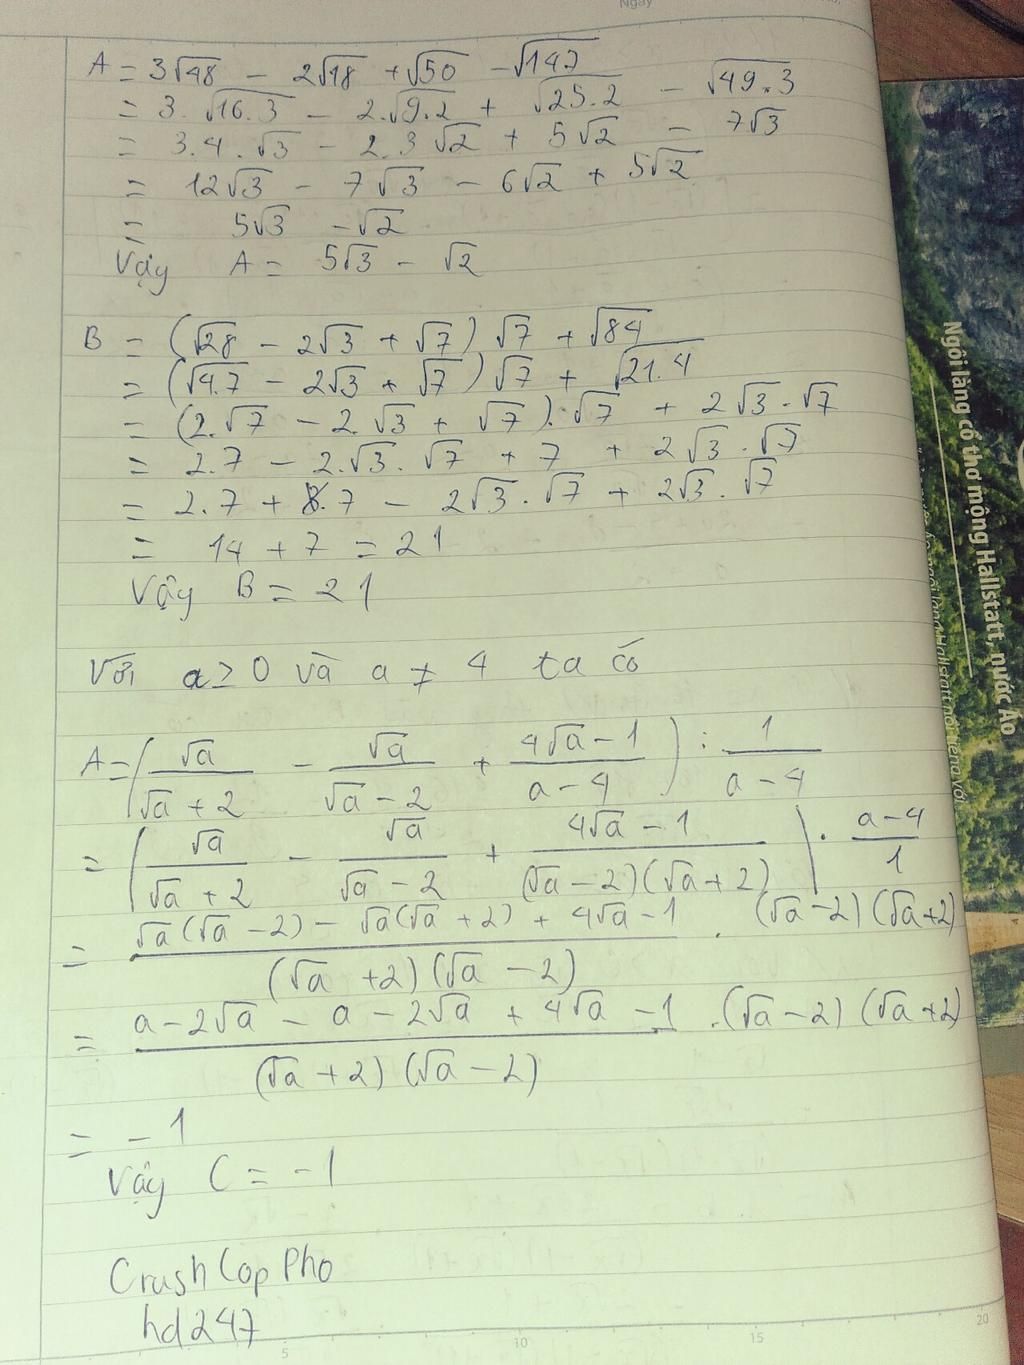 Ngày
A = 3√48 - 2√18 + √50 - √147
= 3.√16.3 - 2.√9.2 + √25.2 - √49.3
= 3.4.√3 - 2.3√2 + 5√2 - 7√3
= 12√3 - 7√3 - 6√2 + 5√2
= 5√3 - √2
Vậy A = 5√3 - √2
B = (√28 - 2√3 + √7)√7 + √84
= (√4.7 - 2√3 + √7)√7 + √21.4
= (2.√7 - 2.√3 + √7).√7 + 2√3.√7
= 2.7 - 2.√3.√7 + 7 + 2√3.√7
= 2.7 + 7 - 2√3.√7 + 2√3.√7
= 14 + 7 = 21
Vậy B = 21
Với a ≥ 0 và a ≠ 4 ta có
A = (√a/(√a + 2) - √a/(√a - 2) + (4√a - 1)/(a - 4)) : 1/(a - 4)
= (√a/(√a + 2) - √a/(√a - 2) + (4√a - 1)/((√a - 2)(√a + 2))) . (a - 4)/1
= (√a(√a - 2) - √a(√a + 2) + 4√a - 1)/((√a + 2)(√a - 2)) . (√a - 2)(√a + 2)
= (a - 2√a - a - 2√a + 4√a - 1)/((√a + 2)(√a - 2)) . (√a - 2)(√a + 2)
= -1
Vậy C = -1
Crush Cop Pho
hd247
5 10 15 20
Ngôi làng cổ thơ mộng Hallstatt, nước Áo